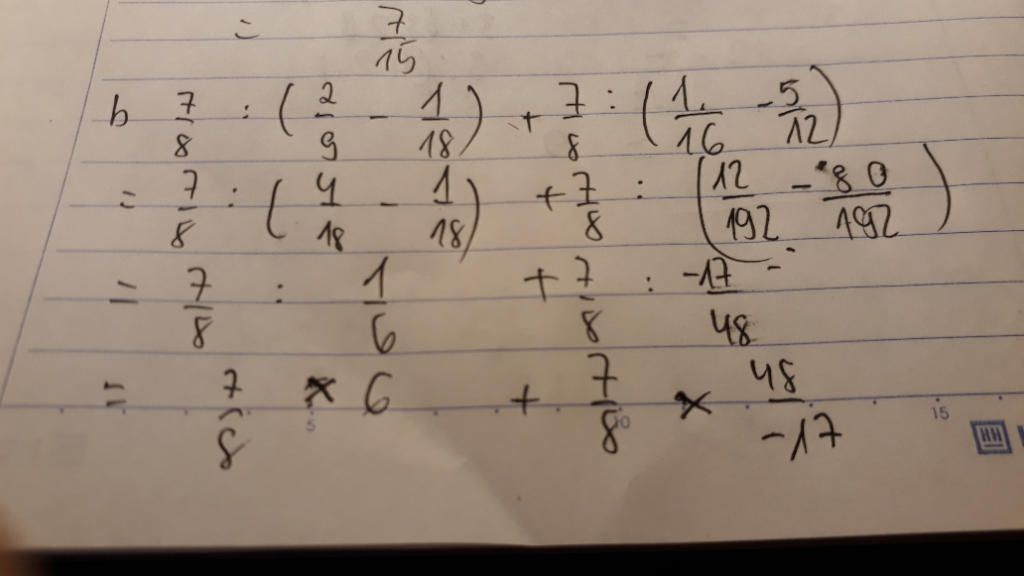 = 7/15
b 7/8 : ( 2/9 - 1/18 ) + 7/8 : ( 1/16 - 5/12 )
= 7/8 : ( 4/18 - 1/18 ) + 7/8 : ( 12/192 - 80/192 )
= 7/8 : 1/6 + 7/8 : -17/48
= 7/8 × 6 + 7/8 × 48/-17
5 10 15